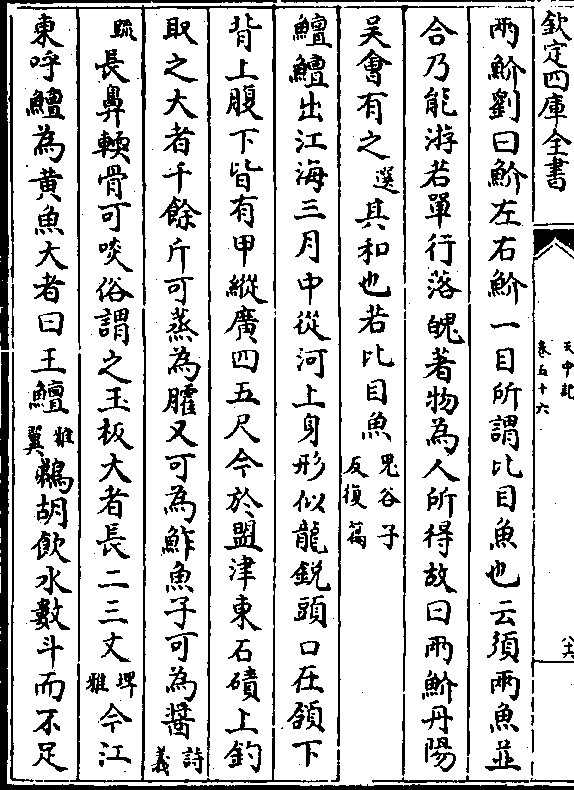 欽定四庫全書
天中記
卷五十六
兩魪劉曰魪左右魪一目所謂比目魚也云須兩魚並
合乃能游若單行落魄著物為人所得故曰兩魪丹陽
吳會有之選其和也若比目魚鬼谷子反復篇
鱣鱣出江海三月中從河上身形似龍銳頭口在頷下
背上腹下皆有甲縱廣四五尺今於盟津東石磧上釣
取之大者千餘斤可蒸為臛又可為鮓魚子可為醬詩義
疏長鼻軟骨可啖俗謂之玉板大者長二三丈埤雅今江
東呼鱣為黄魚大者曰王鱣雅翼鵜胡飲水數斗而不足